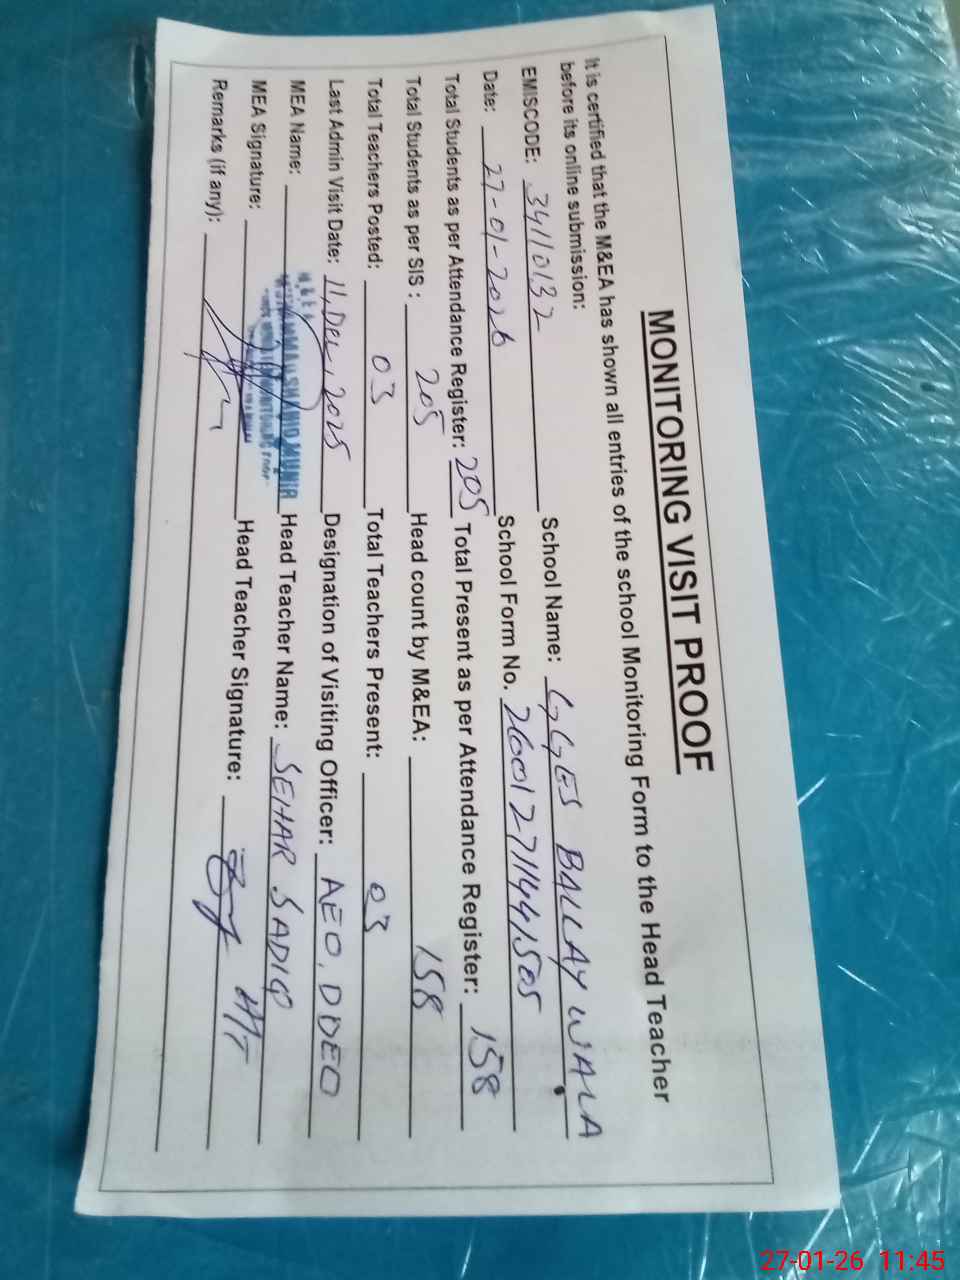 MONITORING VISIT PROOF
It is certified that the M&EA has shown all entries of the school Monitoring Form to the Head Teacher
before its online submission:
EMISCODE: 34110132 School Name: GGES BALLAY WALA
Date: 27-01-2026 School Form No. 260127114441505
Total Students as per Attendance Register: 205 Total Present as per Attendance Register: 158
Total Students as per SIS: 205 Head count by M&EA: 158
Total Teachers Posted: 03 Total Teachers Present: 03
Last Admin Visit Date: 11, Dec, 2025 Designation of Visiting Officer: AEO, DDEO
MEA Name: SHAHID MUNIR Head Teacher Name: SEHAR SADIQ
MEA Signature: Head Teacher Signature: HT
Remarks (if any):
27-01-26 11:45